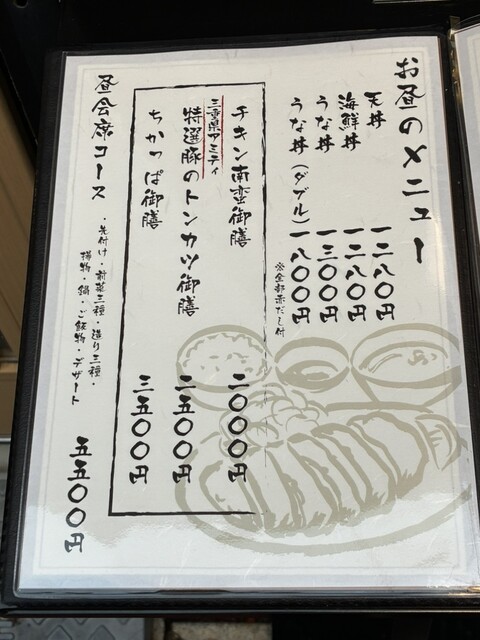 お昼のメニュー
天丼 一二八〇円
海鮮丼 一二八〇円
うな丼 一三〇〇円
うな丼(ダブル) 一八〇〇円
※全部赤だし付
チキン南蛮御膳 二〇〇〇円
三重県アミティ
特選豚のトンカツ御膳 二五〇〇円
ちかっぱ御膳 三五〇〇円
昼会席コース
・先付け・前菜三種・造り三種・
揚物・鍋・ご飯物・デザート
五五〇〇円